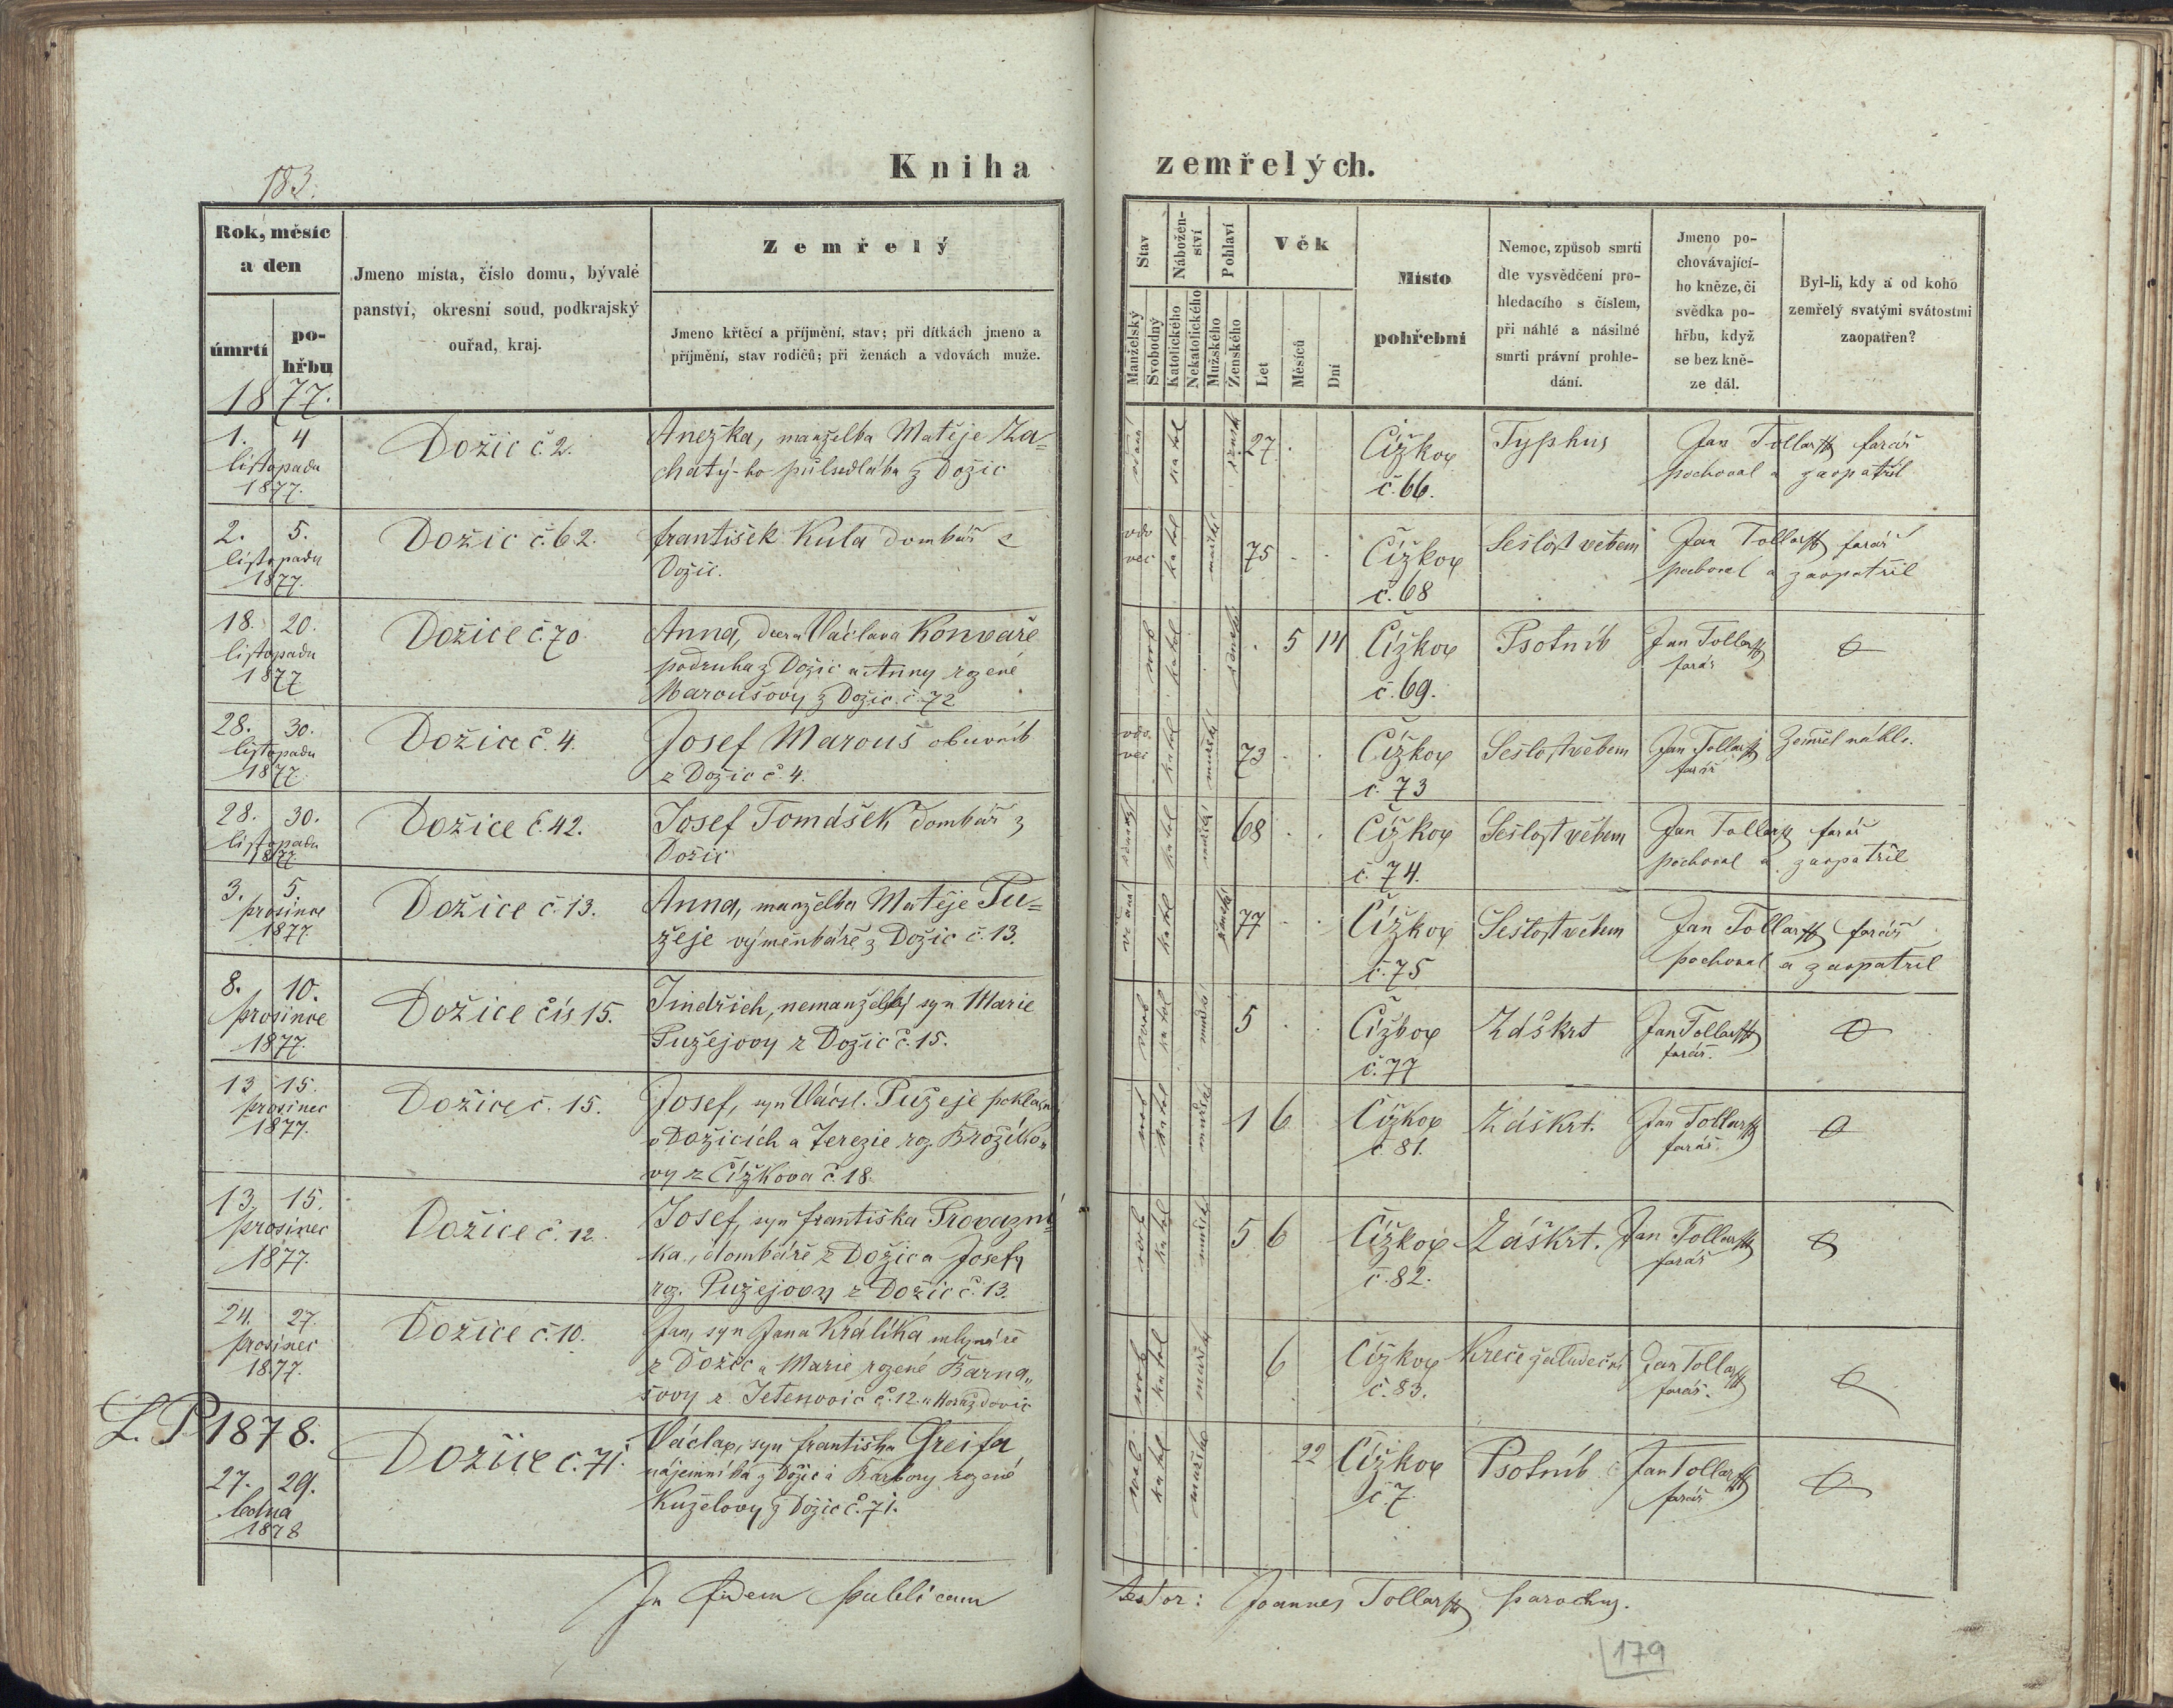 183.
Kniha zemřelých.
Rok, měsíc
a den
úmrtí
po-
hřbu
1877.
Jmeno místa, číslo domu, bývalé
panství, okresní soud, podkrajský
ouřad, kraj.
Zemřelý
Jmeno křtěcí a příjmění, stav; při dítkách jmeno a
příjmění, stav rodičů; při ženách a vdovách muže.
Stav
Nábožen-
ství
Pohlaví
Věk
Manželský
Svobodný
Katolického
Nekatolického
Mužského
Ženského
Let
Měsíců
Dní
Místo
pohřební
Nemoc, způsob smrti
dle vysvědčení pro-
hledacího s číslem,
při náhlé a násilné
smrti právní prohle-
dání.
Jmeno po-
chovávající-
ho kněze, či
svědka po-
hřbu, když
se bez kně-
ze dál.
Byl-li, kdy a od koho
zemřelý svatými svátostmi
zaopatřen?
1. 4
listopadu
1877.
Dožic č. 2.
Anežka, manželka Matěje Za-
chatý-ho půlsedláka z Dožic
katol
žensk
27
Čížkov
č. 66.
Typhus
Jan Tollar farář
pochoval a zaopatřil
2. 5.
listopadu
1877.
Dožic č. 62.
František Kula domkář z
Dožic.
vdo
vec
katol
mužské
75
Čížkov
č. 68
Sešlost věkem
Jan Tollar farář
pochoval a zaopatřil
18. 20.
listopadu
1877
Dožice č. 70
Anna, dcera Václava Konvaře
podruha z Dožic a Anny rozené
Maroušovy z Dožic č. 72
svob
katol
žensk
5 14
Čížkov
č. 69.
Psotník
Jan Tollar
farář
28. 30.
listopadu
1877.
Dožice č. 4.
Josef Marouš obuvník
z Dožic č. 4.
vdo
vec
katol
mužský
73
Čížkov
č. 73
Sešlost věkem
Jan Tollar
farář
Zemřel náhle.
28. 30.
listopadu
1877.
Dožice č. 42.
Josef Tomášek domkář z
Dožic
katol
mužské
68
Čížkov
č. 74.
Sešlost věkem
Jan Tollar farář
pochoval a zaopatřil
3. 5.
prosince
1877
Dožice č. 13.
Anna, manželka Matěje Pu=
žeje výměnkáře z Dožic č. 13.
katol
ženské
77
Čížkov
č. 75
Sešlost věkem
Jan Tollar farář
pochoval a zaopatřil
8. 10.
prosince
1877.
Dožice čís 15.
Jindřich, nemanželský syn Marie
Pužejovy z Dožic č. 15.
svob
katol
mužské
5
Čížkov
č. 77
Záškrt
Jan Tollar
farář.
13 15.
prosinec
1877.
Dožice č. 15.
Josef, syn Václ. Pužeje
v Dožicích a Terezie roz. Brožíko-
vy z Čížkova č. 18.
svob
katol
mužské
1 6
Čížkov
č. 81.
Záškrt.
Jan Tollar
farář.
13. 15.
prosinec
1877.
Dožice č. 12.
Josef, syn Františka Provazní
ka, domkáře z Dožic a Josefy
roz. Pužejovy z Dožic č. 13.
svob
katol
mužské
5 6
Čížkov
č. 82.
Záškrt.
Jan Tollar
farář
24. 27.
prosinec
1877.
Dožice č. 10.
Jan, syn Jana Králíka mlynáře
z Dožic a Marie rozené Barna„
šovy z Jetenovic č. 12. u Horažďovic
svob
katol
mužsk
6
Čížkov
č. 83.
Křeče žaludeční
Jan Tollar
farář.
L. P. 1878.
27. 29.
ledna
1878
Dožice č. 71.
Václav, syn Františka Greifa
nájemníka z Dožic a Barbory rozené
Kuželovy z Dožic č. 71.
svob
katol
mužské
22
Čížkov
č. 7
Psotník
Jan Tollar
farář
In fidem publicam testor: Joannes Tollar parochus.
179